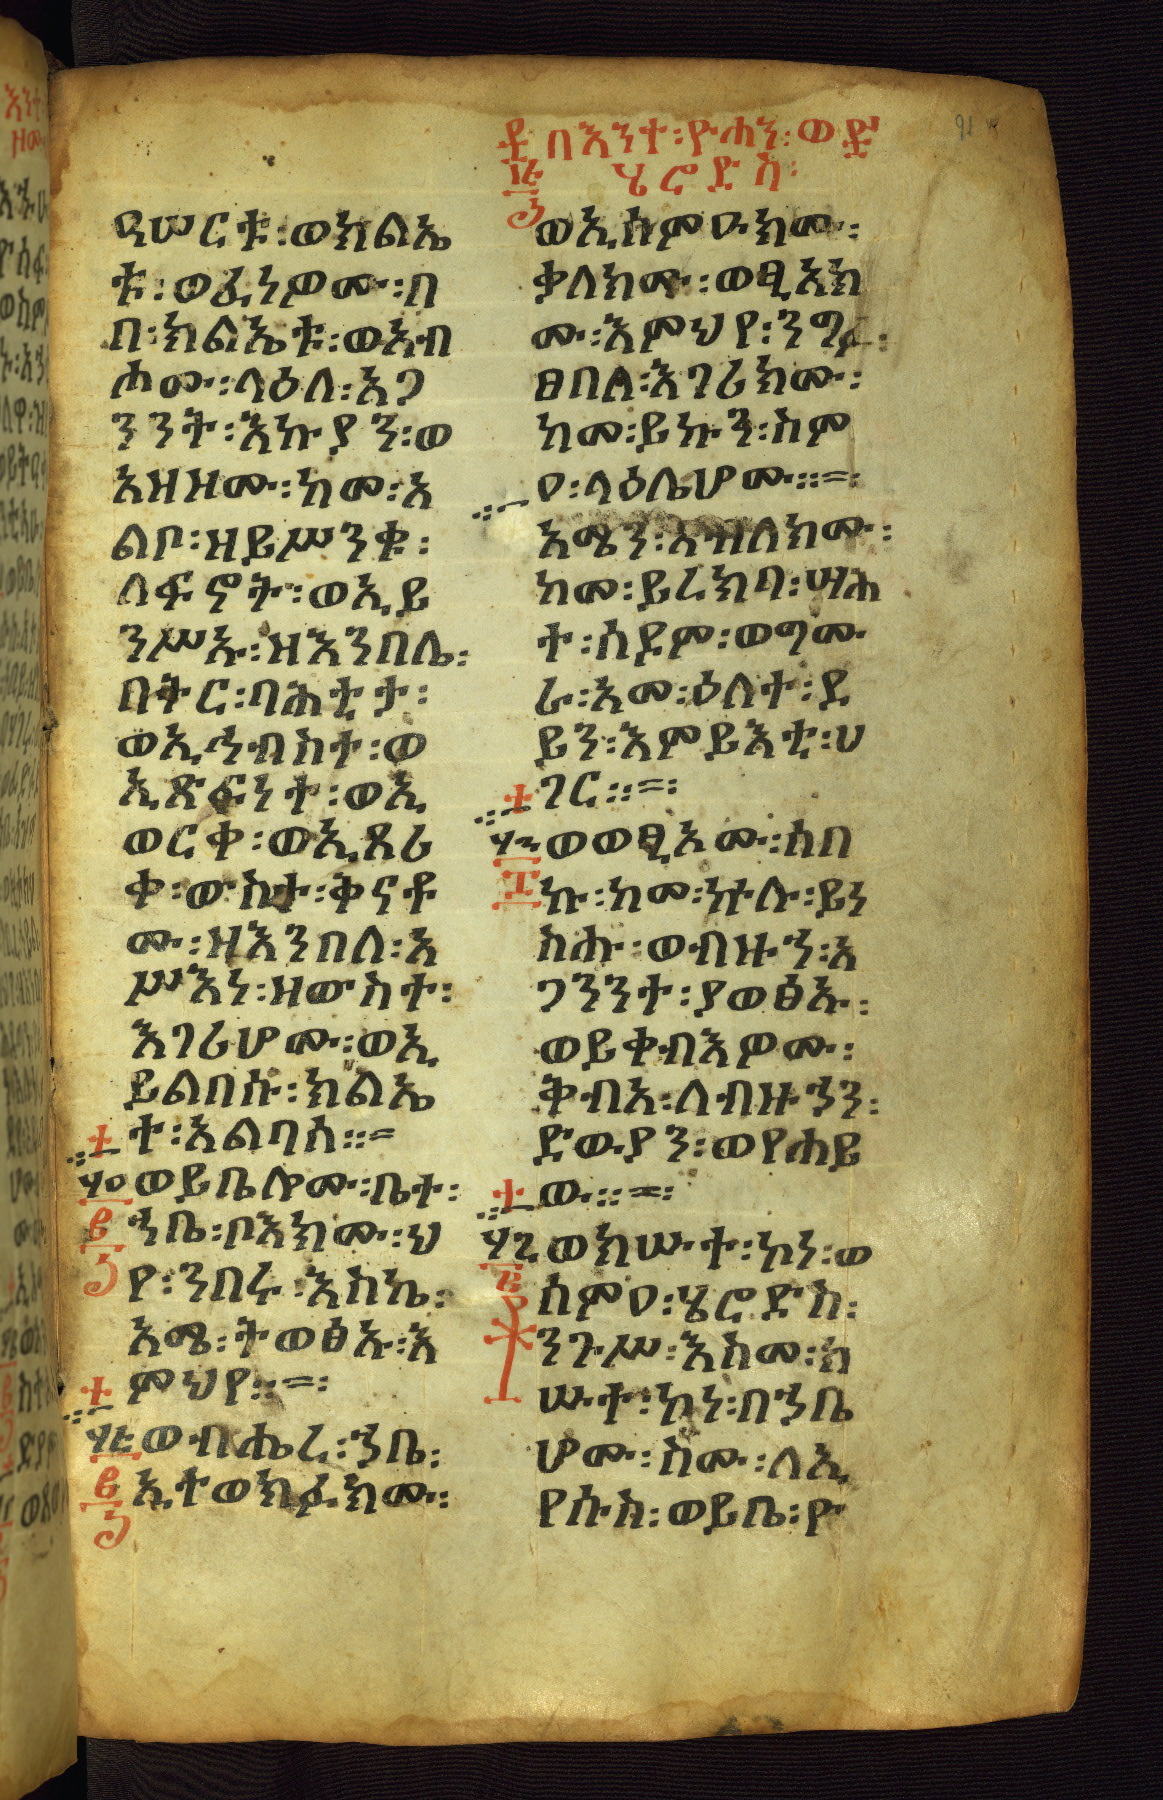 በእንተ፡ዮሐን፡ወ
ሄሮድስ፡
ዓሠርቱ፡ወክልኤ
ቱ፡ወፈነዎሙ፡በ
በ፡ክልኤቱ፡ወአብ
ሖሙ፡ላዕለ፡አጋ
ንንት፡እኩያን፡ወ
አዝዘሙ፡ከመ፡አ
ልቦ፡ዘይሥንቁ፡
ለፍኖት፡ወኢይ
ንሥኡ፡ዝእንበሌ፡
በትር፡ባሕቲታ፡
ወኢኅብስተ፡ወ
ኢጽፍነተ፡ወኢ
ወርቀ፡ወኢጸሪ
ቀ፡ውስተ፡ቅናቶ
ሙ፡ዘእንበለ፡አ
ሥእነ፡ዘውስተ፡
እገሪሆሙ፡ወኢ
ይልበሱ፡ክልኤ
ተ፡አልባሰ።=
ወይቤሎሙ፡ቤተ፡
ኀቤ፡ቦእክሙ፡ህ
የ፡ንበሩ፡እስኬ፡
አሜ፡ትወፅኡ፡እ
ምህየ።=፡
ወብሔረ፡ኀቤ፡
ኢተወክፈክሙ፡
ወኢሰምዑክሙ፡
ቃለክሙ፡ወፂአክ
ሙ፡እምህየ፡ንግፉ፡
ፀበለ፡እገሪክሙ፡
ከመ፡ይኩን፡ስም
ዐ፡ላዕሌሆሙ።=፡
አሜን፡እብለክሙ፡
ከመ፡ይረክባ፡ሣሕ
ተ፡ሰዶም፡ወግሙ
ራ፡አመ፡ዕለተ፡ደ
ይን፡እምይእቲ፡ሀ
ገር።=፡
ወወፂኦሙ፡ሰበ
ኩ፡ከመ፡ኵሉ፡ይነ
ስሑ፡ወብዙኀ፡አ
ጋንንተ፡ያወፅኡ፡
ወይቀብእዎሙ፡
ቅብአ፡ለብዙኀን፡
ድውያን፡ወየሐይ
ው።=፡
ወክሡተ፡ኮነ፡ወ
ሰምዐ፡ሄሮድስ፡
ንጉሥ፡እስመ፡ክ
ሡተ፡ኮነ፡በኀቤ
ሆሙ፡ስሙ፡ለኢ
የሱስ፡ወይቤ፡ዮ